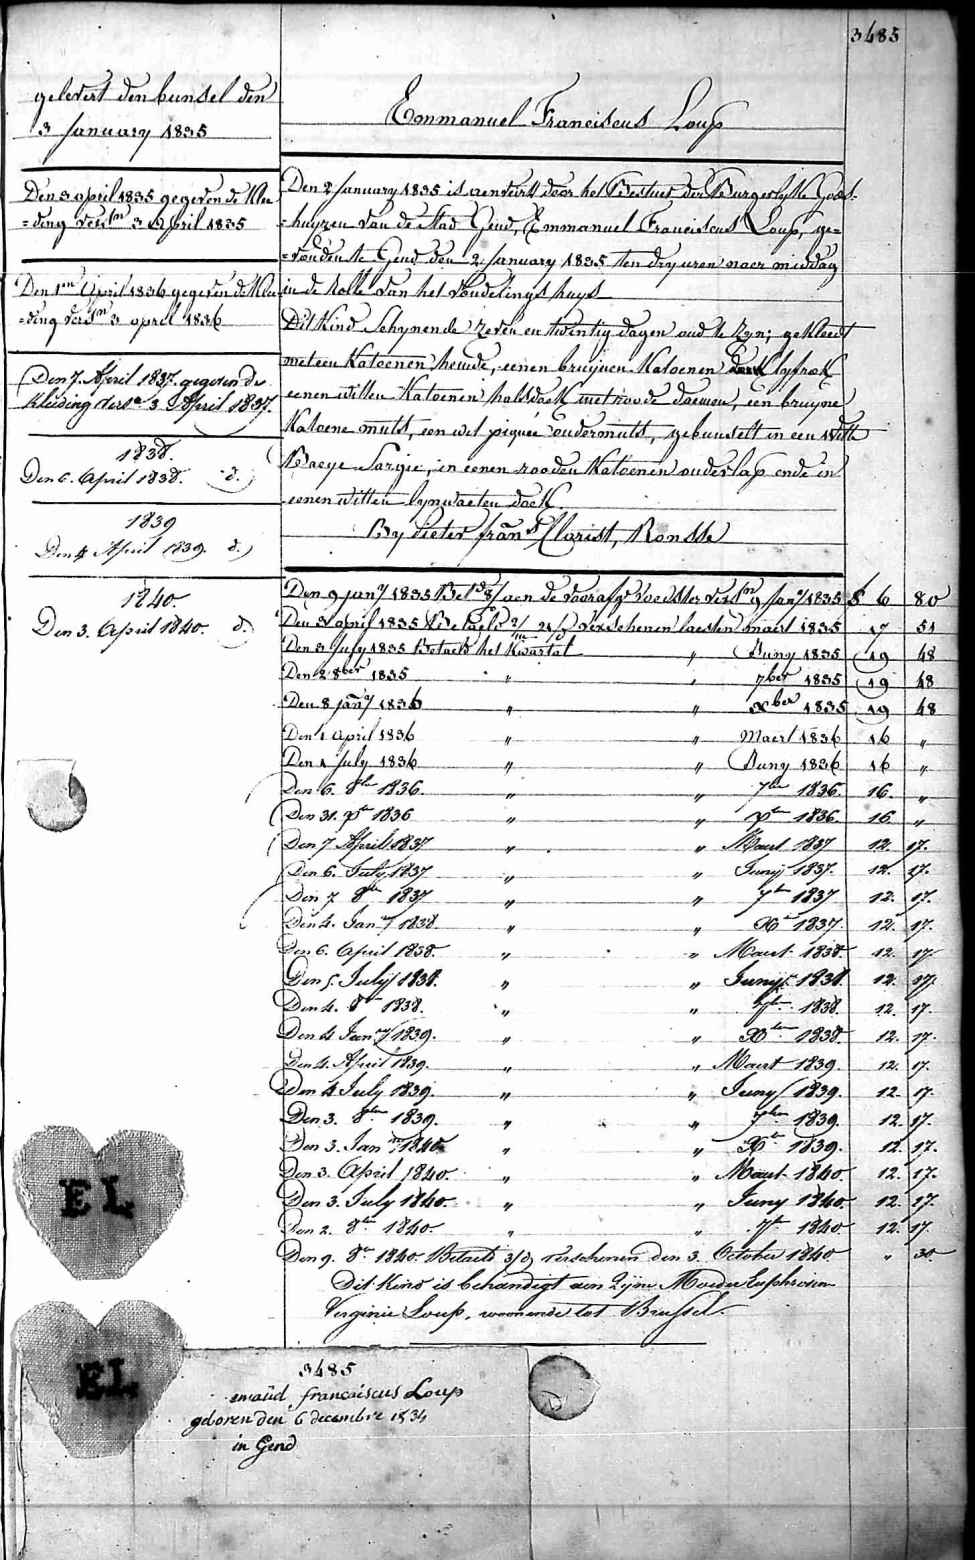 3485
gelevert den bunsel den
3 January 1835
Den 3 april 1835 gegeven de Klee
=ding verst^n 3 April 1835
Den 1^n April 1836 gegeven de Klee
=ding verst^n 3 april 1836
Den 7. April 1837. gegeven de
Kleeding verst^n 3 April 1837.
1838.
Den 6. April 1838. d.
1839
Den 4 April 1839. d.
1840.
Den 3. April 1840. d.
Emmanuel Franciscus Loup
Den 2 January 1835 is aenveird door het Bestuer der Burgerlyke Gods-
=huyzen van de Stad Gend, Emmanuel Franciscus Loup, ge=
=vonden te Gend den 2 January 1835 ten dry uren naer middag
in de rolle van het vondelingshuys
Dit Kind schynende zeven en twintig dagen oud te zyn; gekleed
met een Katoenen hemde, eenen bruynen Katoenen lyfrok
eenen witten Katoenen halsdoek met roode bloemen, een bruyne
Katoene muts, een wit piquée ondermuts, gebunselt in een Witte
Baeye Sargie, in eenen rooden Katoenen onderlap ende in
eenen witten lynwaeten doek
By Pieter fran^s Clarist, Ronsse
Den 9 jan^y 1835 Bet^d 8/ aen de voorafg^e voedster verst^n 9 Jan^y 1835 f 6 80
Den 3 april 1835 Betaeld verschenen laesten maert 1835 17 51
Den 3 July 1835 Betaeld het Kwartal " Juny 1835 19 48
Den 2 8^ber 1835 " " 7^ber 1835 19 48
Den 8 jan^y 1836 " " X^ber 1835 19 48
Den 1 april 1836 " " Maert 1836 16 "
Den 1 July 1836 " " Juny 1836 16 "
Den 6. 8^br 1836. " " 7^br 1836. 16. "
Den 31. X^br 1836 " " X^br 1836. 16 "
Den 7 April 1837 " " Maert 1837 12. 17.
Den 6. July 1837 " " Junij 1837. 12. 17.
Den 7. 8^br 1837 " " 7^br 1837 12. 17.
Den 4. Jan^y 1838. " " X^r 1837. 12. 17.
Den 6. April 1838. " " Maert 1838. 12. 17
Den 5. Julij 1838. " " Junij 1838. 12. 17.
Den 4. 8^br 1838. " " 7^br 1838. 12. 17.
Den 4 Jan^y 1839. " " X^ber 1838. 12. 17.
Den 4. April 1839. " " Maert 1839. 12. 17.
Den 4 July 1839. " " Juny 1839. 12. 17.
Den 3. 8^ber 1839. " " 7^ber 1839. 12. 17.
Den 3. Jan^y 1840. " " X^br 1839. 12. 17.
Den 3. April 1840. " " Maert 1840. 12. 17.
Den 3. July 1840. " " Juny 1840. 12. 17.
Den 2. 8^br 1840. " " 7^br 1840 12. 17.
Den 9. 8^br 1840. Betaeld 3/d verschenen den 3. October 1840 " 30
Dit Kind is behandigt aen Zijne Moeder Euphrosine
Virginie Loup, woonende tot Brussel.
EL
EL
3485
emaüd francoiscus Loup
geboren den 6 decembre 1834
in Gend
D